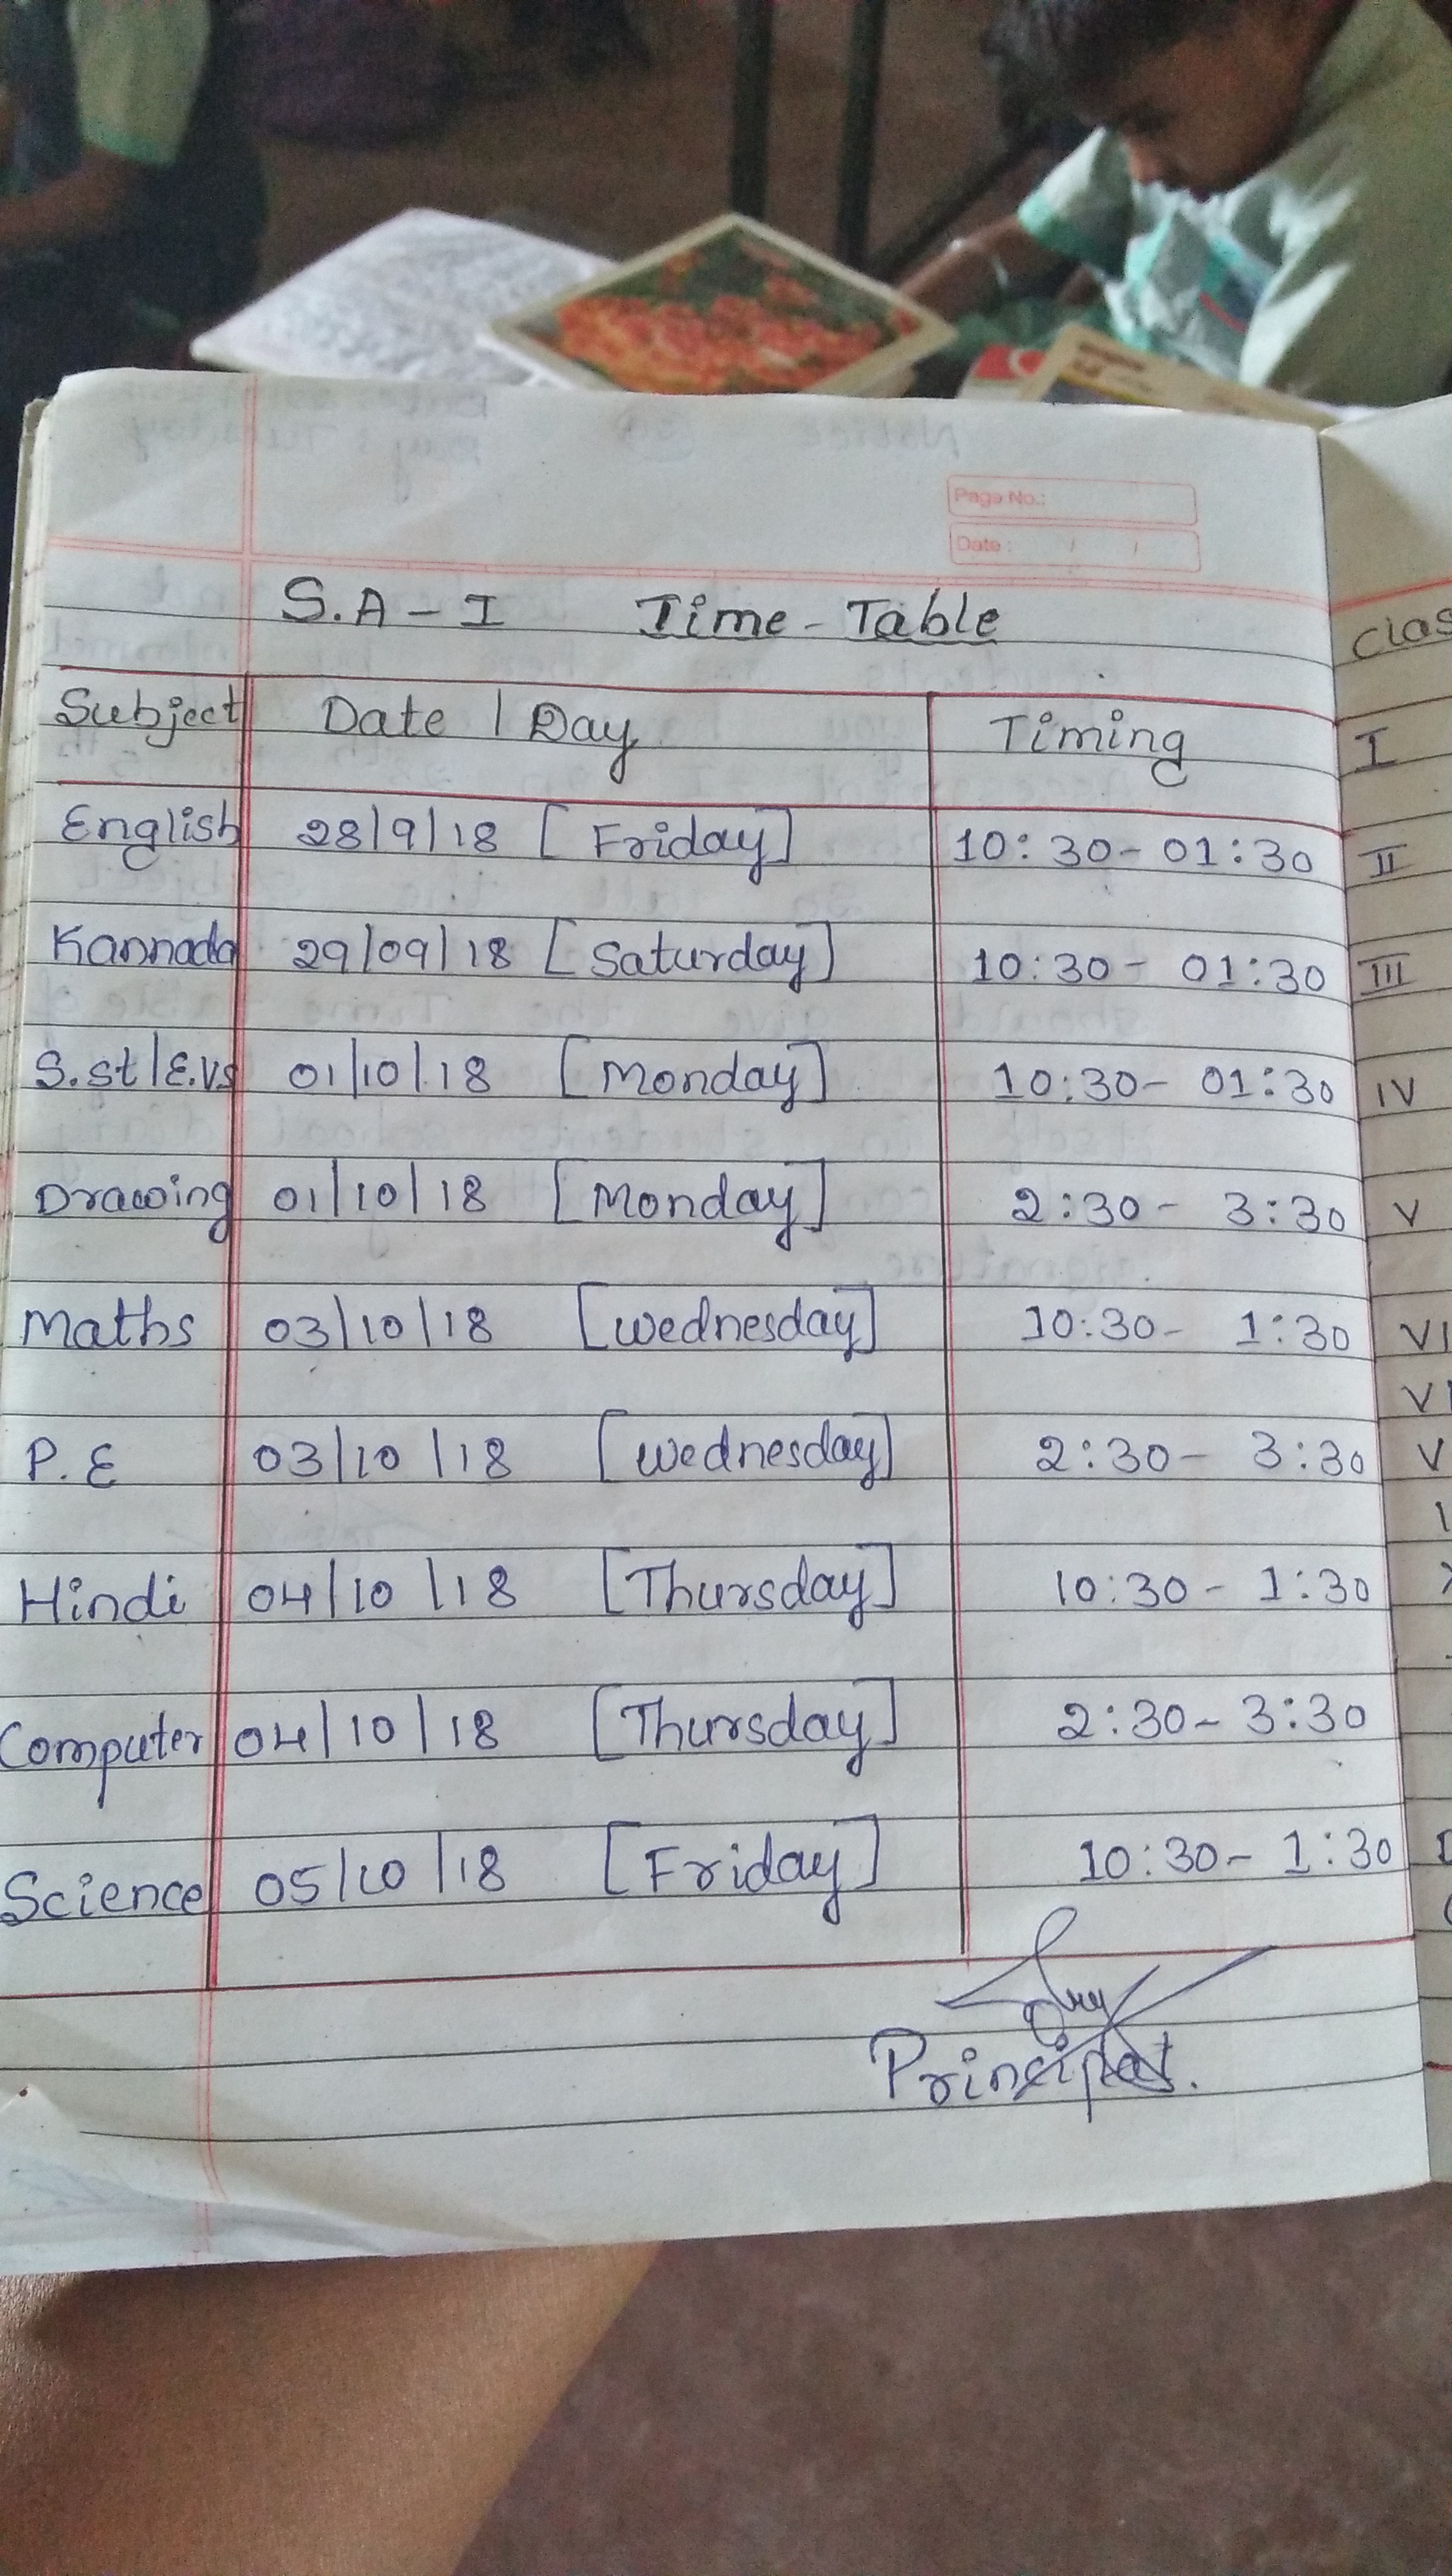 Page No.:
Date: / /
S.A - I Time - Table
Subject Date | Day Timing
English 28/9/18 [Friday] 10:30 - 01:30
Kannada 29/09/18 [Saturday] 10:30 - 01:30
S.st|E.vs 01/10/18 [Monday] 10:30 - 01:30
Drawing 01/10/18 [Monday] 2:30 - 3:30
Maths 03/10/18 [Wednesday] 10:30 - 1:30
P.E 03/10/18 [Wednesday] 2:30 - 3:30
Hindi 04/10/18 [Thursday] 10:30 - 1:30
Computer 04/10/18 [Thursday] 2:30 - 3:30
Science 05/10/18 [Friday] 10:30 - 1:30
Principal.
I
II
III
IV
V